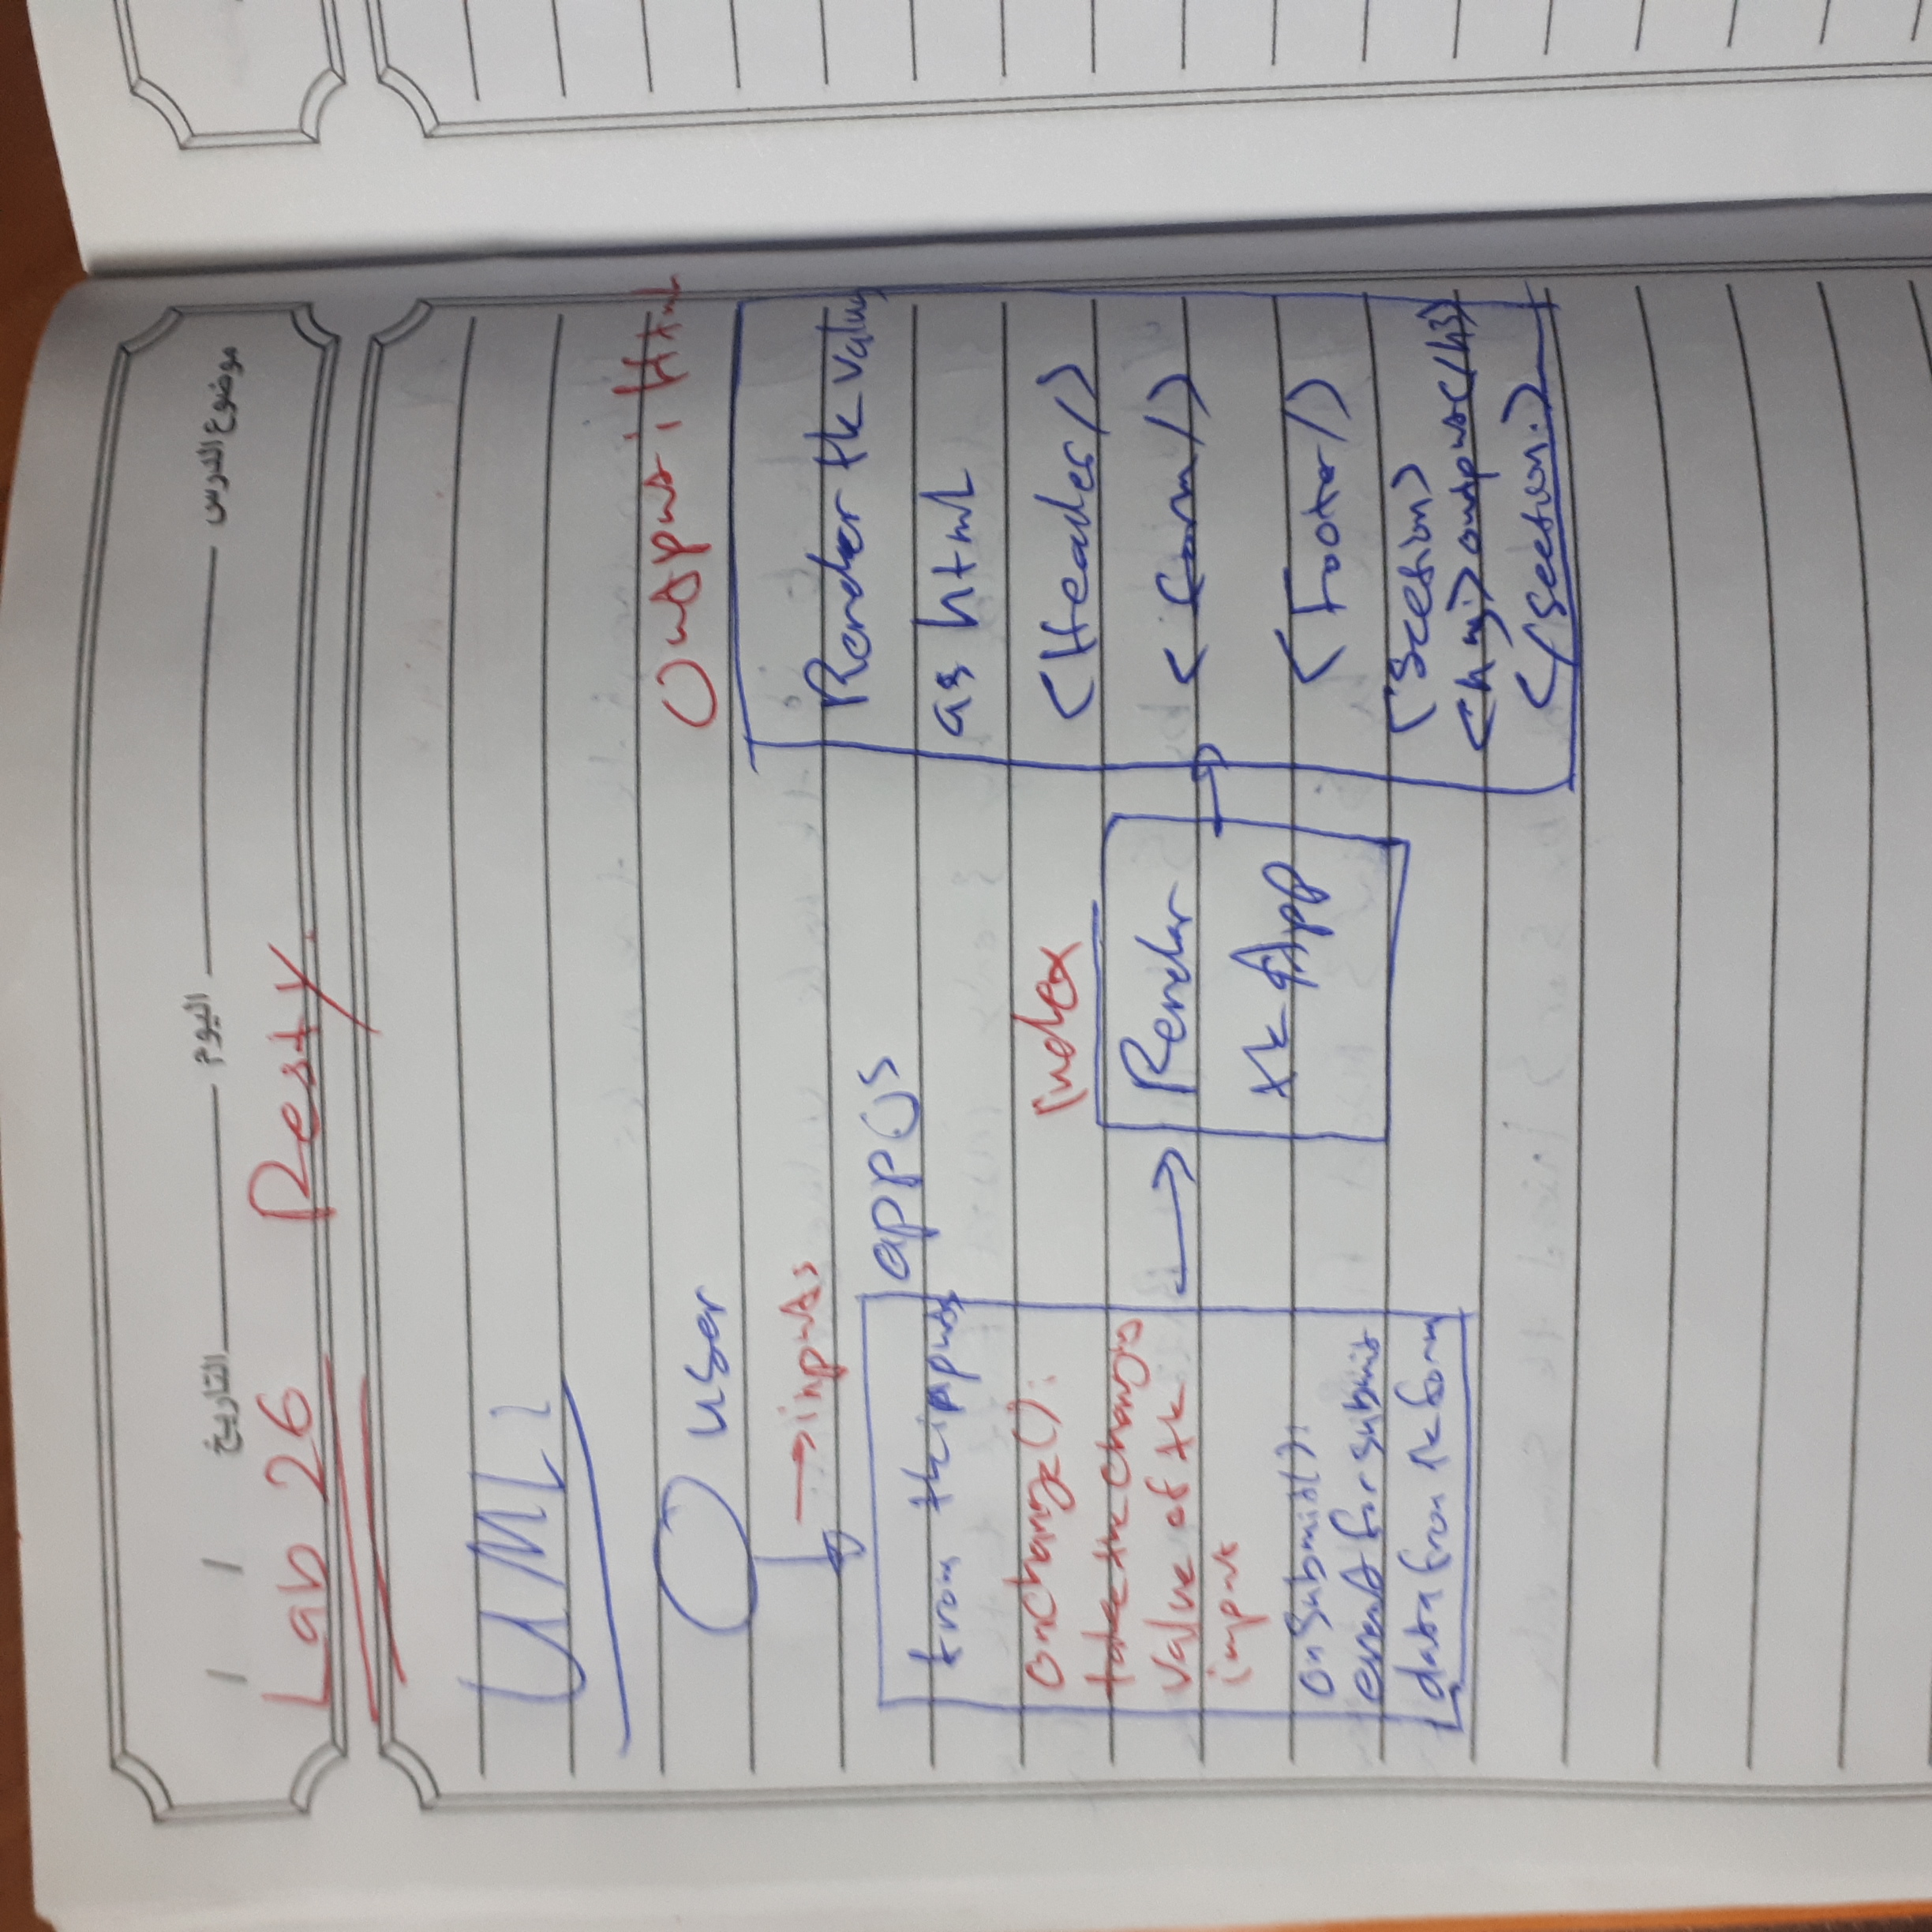 موضوع الدرس اليوم التاريخ / /
Lab 26 Resty.
UML:
user
Output: Html
→ inputs
app js
from the inputs
onChange():
take the changing
value of the
input
onSubmit():
event for submit
data from the form
Index
Render
the App
Render the value
as html
<Header/>
<form/>
<Footer/>
<Section>
output</h3>
</section>